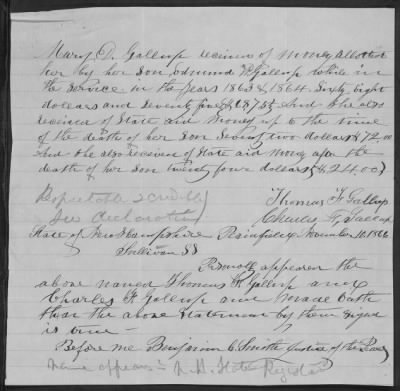 Mary D. Gallup received of money allotted
her by her son Edmund F Gallup while in
the service in the years 1863 & 1864. Sixty eight
dollars and seventy five $68.75 And she also
received of State aid money up to the time
of the death of her son seventy two dollars $72.00
And she also received of State aid money after the
death of her son twenty four dollars $24.00
Respectable & credible
See declaration
Thomas F Gallup
Charles F. Gallup
State of New Hampshire Plainfield November 10, 1866
Sullivan SS
Personally appeared the
above named Thomas F Gallup and
Charles F Gallup and made oath
that the above statement by them signed
is true —
Before me Benjamin C. Smith Justice of the Peace
name appears in N.H. State Register